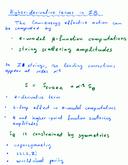 Higher-derivative terms in IIB
The low-energy effective action can
be computed by
• σ-model β-function computations
• string scattering amplitudes
In IIB strings, the leading corrections
appear at order α'³
S = S_SUGRA + α'³ S_R
• higher-derivative term
• 4-loop effect in σ-model computations
• 4 and higher-point function scattering
amplitudes
is constrained by symmetries
• supersymmetry
• SL(2,Z)
• worldsheet parity